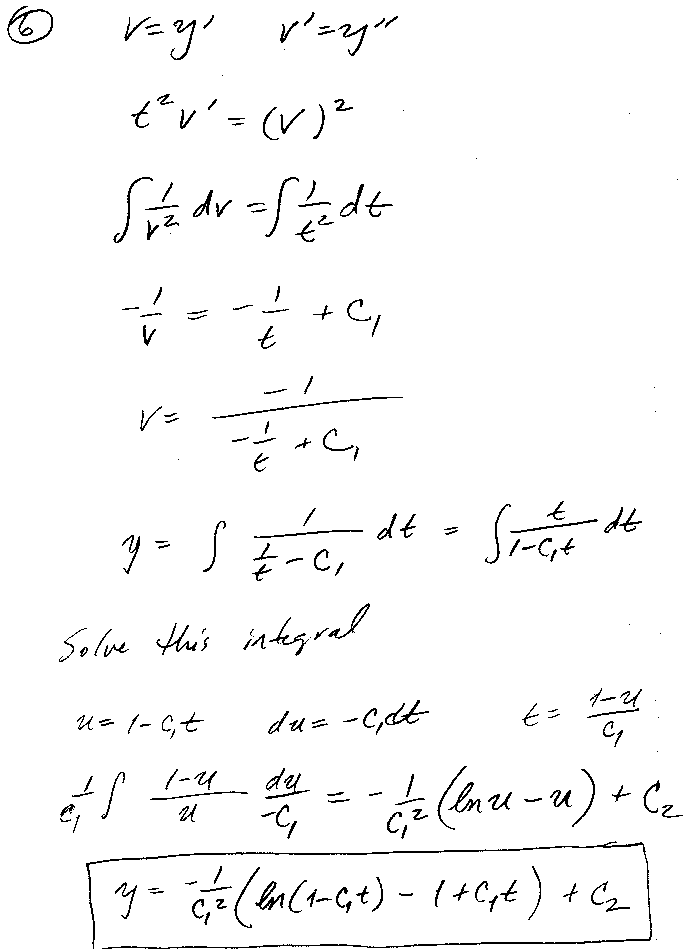 ⑥ v=y' v'=y''
t²v' = (v)²
∫ 1/v² dv = ∫ 1/t² dt
-1/v = -1/t + C₁
v = -1/(-1/t + C₁)
y = ∫ 1/(1/t - C₁) dt = ∫ t/(1-C₁t) dt
Solve this integral
u = 1-C₁t du = -C₁dt t = (1-u)/C₁
1/C₁ ∫ (1-u)/u du/-C₁ = -1/C₁² (ln u - u) + C₂
y = -1/C₁² (ln(1-C₁t) - 1 + C₁t) + C₂